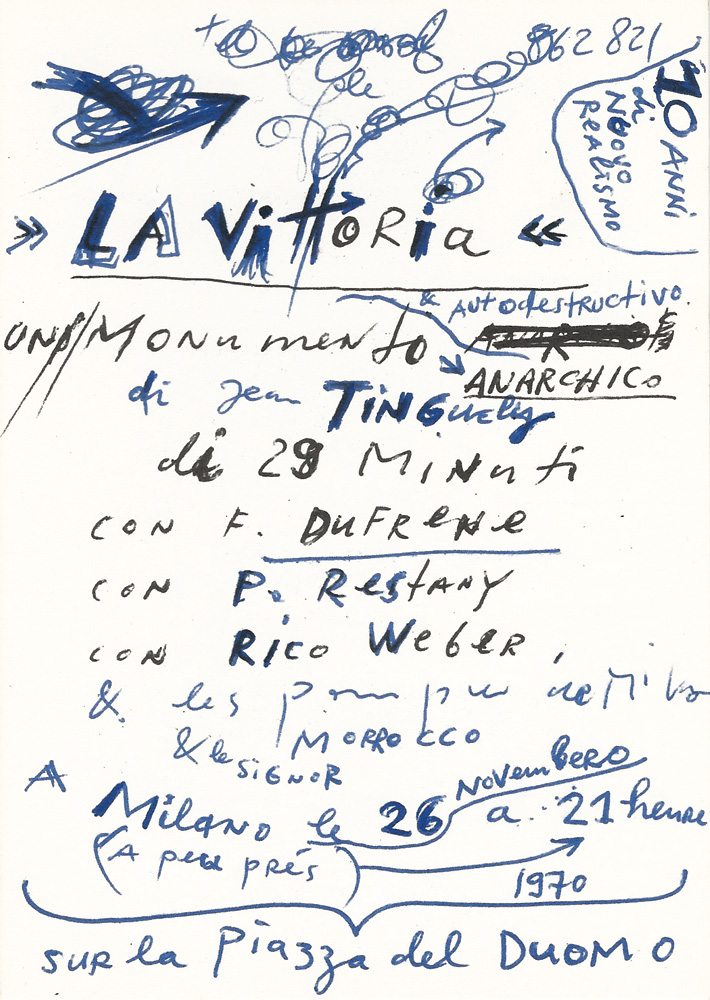 de 862 821
10 ANNI
di
NUOVO
REALISMO
» LA VittoRia «
& AUTodestructivo.
UN Monumento
ANARCHICO
di Jean TINGuely
di 28 MiNuti
CON F. DuFReNe
CON P. RestANY
CON RICO WebeR,
& les pompier de Milano
& le SIGNOR MORROCCO
A Milano le 26 NOVemBeRO a 21 heure
(A peu prés)
1970
SUR la Piazza del DUOMO